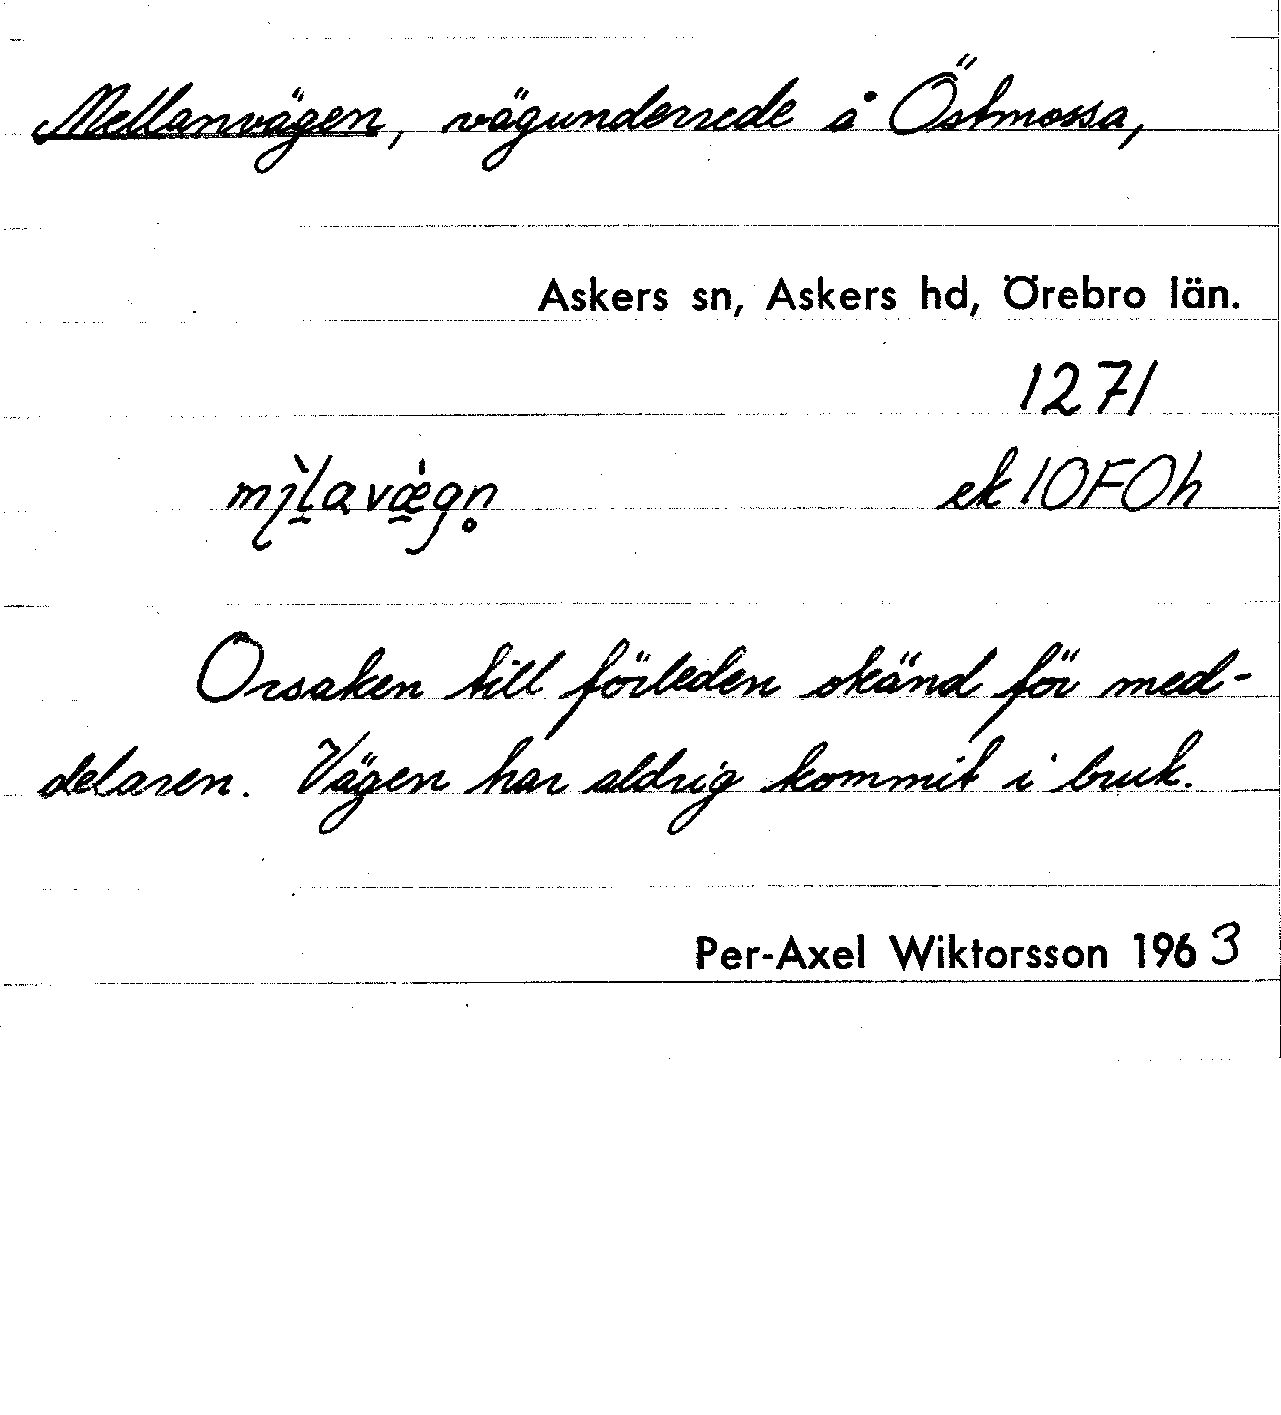 Mellanvägen, vägunderrede å Östmossa,
Askers sn, Askers hd, Örebro län.
1271
ek 10F0h
Orsaken till förleden okänd för med-
delaren. Vägen har aldrig kommit i bruk.
Per-Axel Wiktorsson 1963